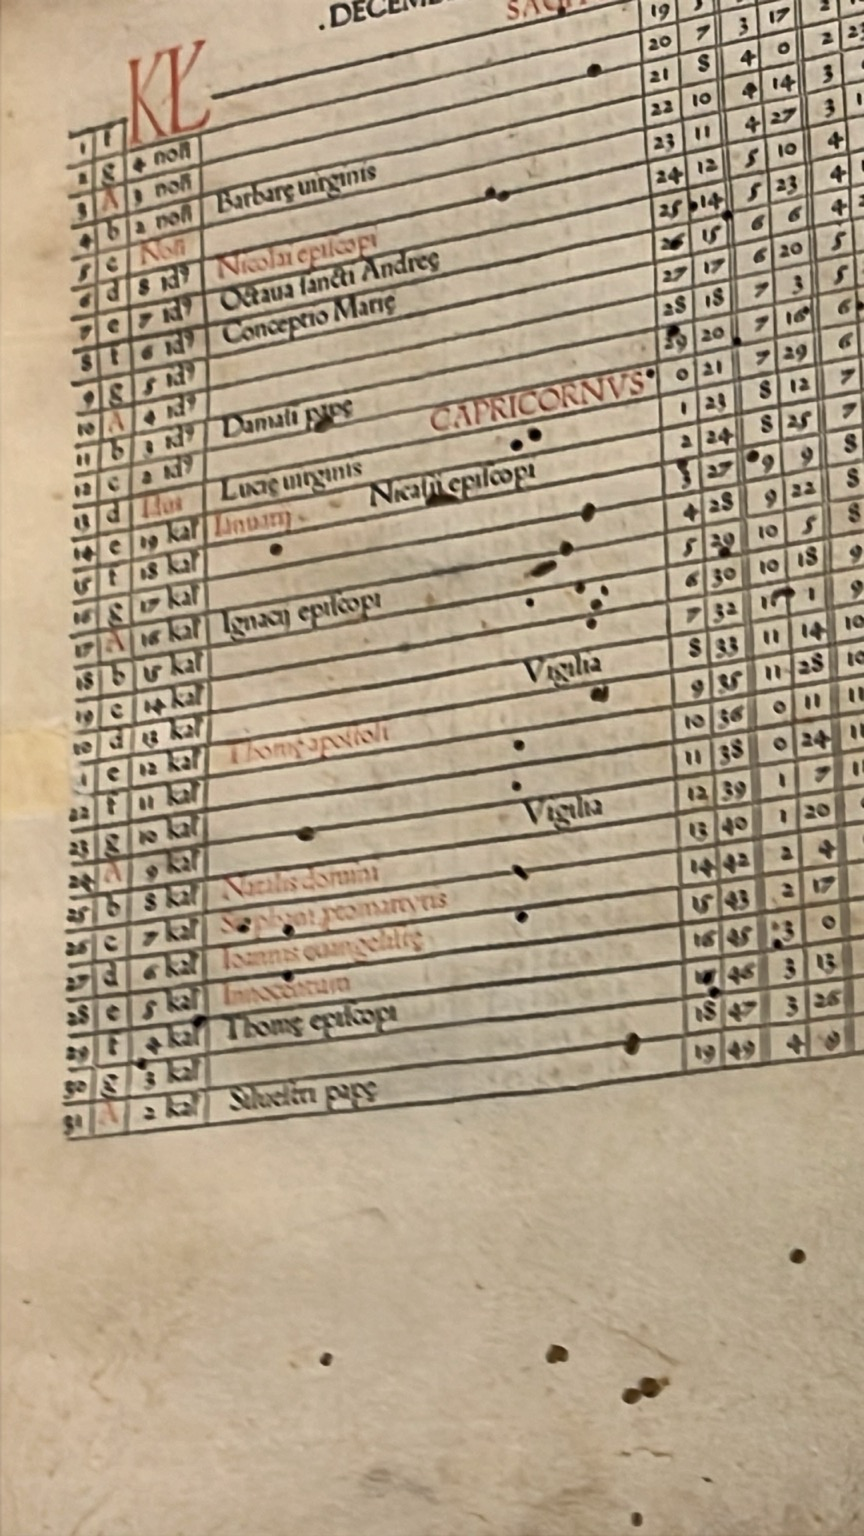 .DECEMB
SAGI
1 f KL 19
2 g 4 noñ 20 7 3 17 2
3 A 3 noñ 21 8 4 0 2 23
4 b 2 noñ Barbarę uirginis 22 10 4 14 3
5 c Noñ 23 11 4 27 3
6 d 8 idꝰ Nicolai episcopi 24 12 5 10 4
7 e 7 idꝰ Octaua sancti Andreę 25 14 5 23 4
8 f 6 idꝰ Conceptio Marię 26 15 6 6 4
9 g 5 idꝰ 27 17 6 20 5
10 A 4 idꝰ 28 18 7 3 5
11 b 3 idꝰ Damasi papę 29 20 7 16 6
12 c 2 idꝰ CAPRICORNVS 0 21 7 29 6
13 d Idus Lucię uirginis 1 23 8 12 7
14 e 19 kal Ianuarij Nicasij episcopi 2 24 8 25 7
15 f 18 kal 3 27 9 9 8
16 g 17 kal 4 28 9 22 8
17 A 16 kal Ignacij episcopi 5 29 10 5 8
18 b 15 kal 6 30 10 18 9
19 c 14 kal 7 32 11 1 9
20 d 13 kal Vigilia 8 33 11 14 10
1 e 12 kal Thomę apostoli 9 35 11 28 10
22 f 11 kal 10 36 0 11 11
23 g 10 kal 11 38 0 24 11
24 A 9 kal Vigilia 12 39 1 7
25 b 8 kal Natalis domini 13 40 1 20
26 c 7 kal Stephani protomartyris 14 42 2 4
27 d 6 kal Ioannis euangelistę 15 43 2 17
28 e 5 kal Innocentum 16 45 3 0
29 f 4 kal Thomę episcopi 46 3 13
30 g 3 kal 18 47 3 26
31 A 2 kal Siluestri papę 19 49 4 9